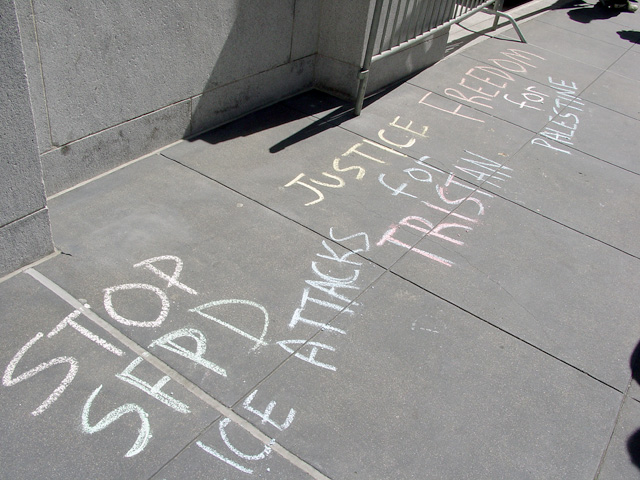 STOP
SFPD
ICE ATTACKS
JUSTICE
for
TRISTAN
FREEDOM
for
PALESTINE